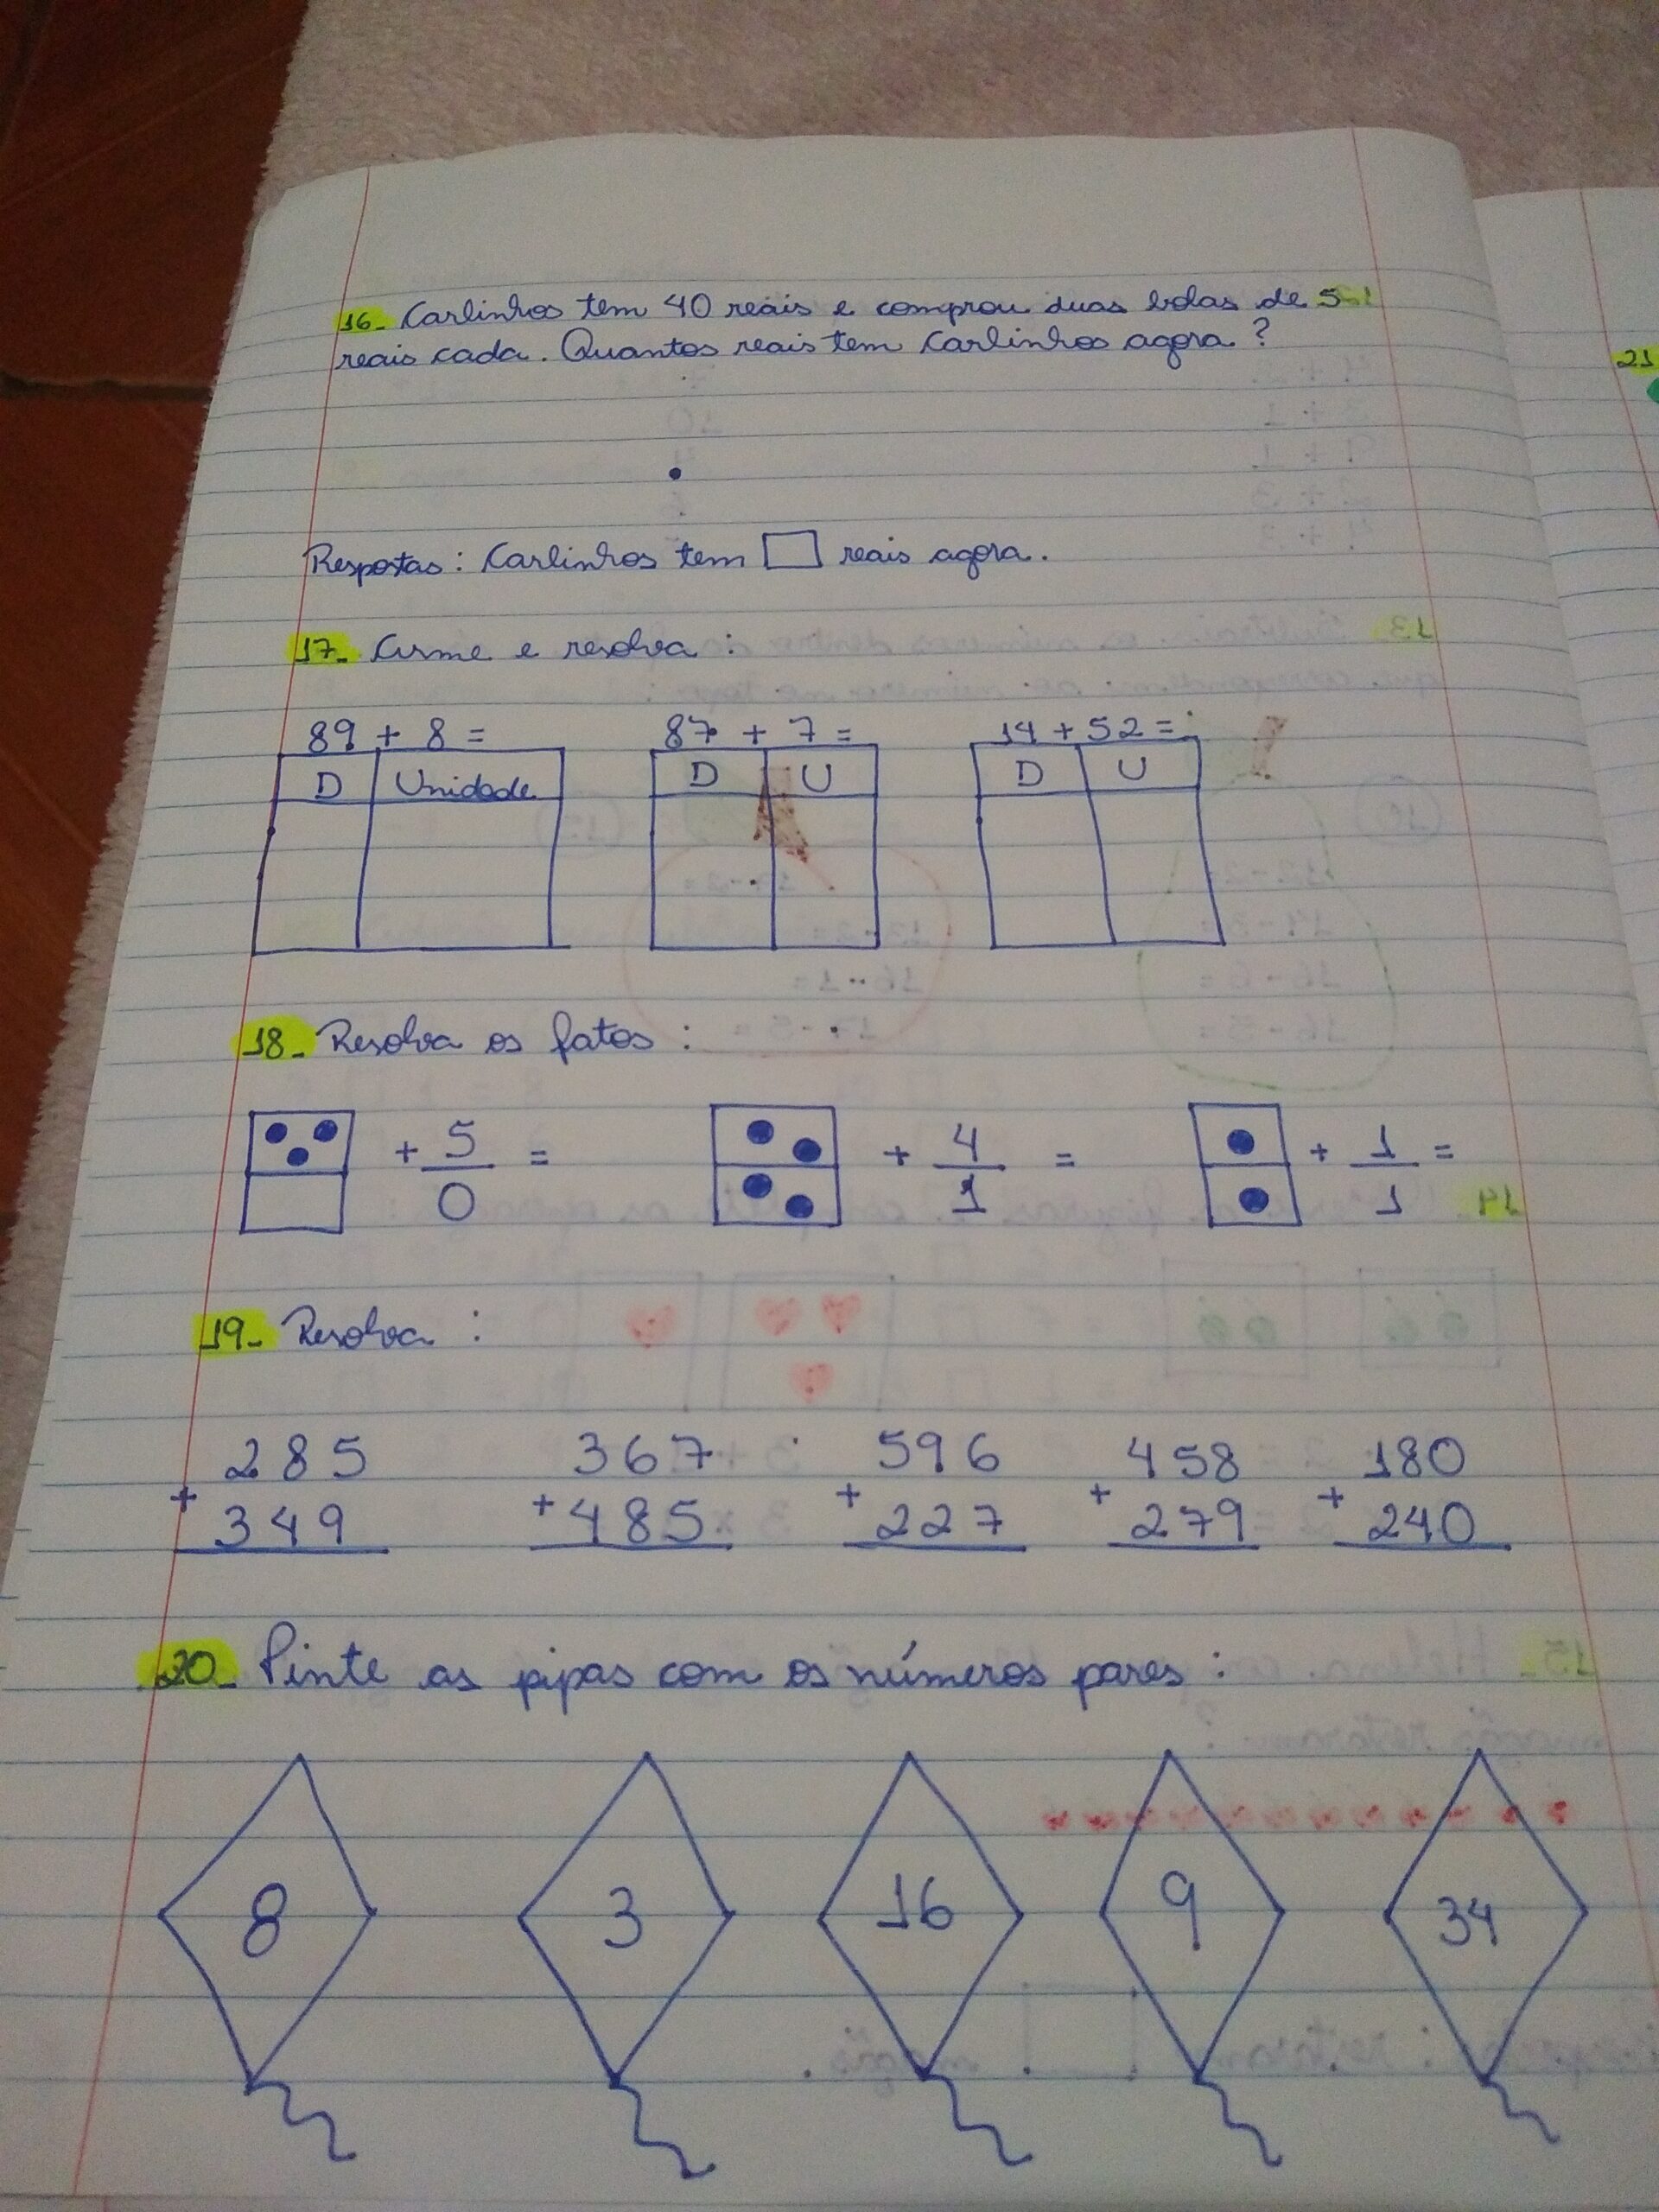 16- Carlinhos tem 40 reais e comprou duas bolas de 5
reais cada. Quantos reais tem Carlinhos agora?
Respostas: Carlinhos tem reais agora.
17- Arme e resolva:
89 + 8 = 87 + 7 = 14 + 52 =
D Unidade D U D U
18- Resolva os fatos:
+ 5 = + 4 = + 1 =
0 1 1
19- Resolva:
285 367 596 458 180
+ 349 + 485 + 227 + 279 + 240
20- Pinte as pipas com os números pares:
8 3 16 9 34
21